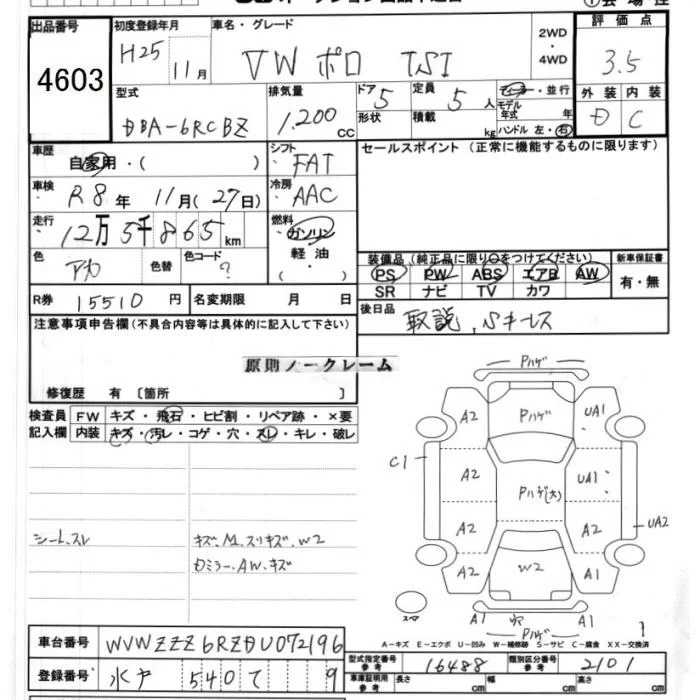 出品番号
4603
初度登録年月
H25 11月
車名・グレード
VW ポロ TSI
2WD
・
4WD
評価点
3.5
型式
DBA-6RCBZ
排気量
1.200 cc
ドア 5
形状
定員 5 人
積載 kg
ディーラー・並行
モデル年式 年
ハンドル 左・右
外装 内装
D C
車歴
自家用・( )
シフト
FAT
セールスポイント (正常に機能するものに限ります)
車検
R8年 11月(27日)
冷房
AAC
走行
12万5千865km
燃料
ガソリン
軽油
・( )
色
アカ
色替
色コード
?
装備品 (純正品に限り○をつけてください)
PS PW ABS エアB AW
SR ナビ TV カワ
新車保証書
有・無
R券 15510円
名変期限 月 日
後日品
取説、Sキーレス
注意事項申告欄(不具合内容等は具体的に記入して下さい)
原則ノークレーム
修復歴 有 〔箇所 〕
検査員記入欄
FW キズ・飛石・ヒビ割・リペア跡・×要
内装 キズ・汚レ・コゲ・穴・スレ・キレ・破レ
シート、スレ
キズ、M、スリキズ、W2
Dミラー、AW、キズ
Pハゲ
A2 Pハゲ UA1
C1 A2 Pハゲ(大) UA1
A2 A2 UA2
A2 W2 A1
スペア
A1 穴 A1
Pハゲ
A-キズ E-エクボ U-凹み W-補修跡 S-サビ C-腐食 XX-交換済
車台番号 WVWZZZ6RZDU072196
登録番号 水戸 540 て 9
型式指定番号 参考 16488
類別区分番号 参考 2101
車庫証明用 参考 長さ cm 幅 cm 高さ cm